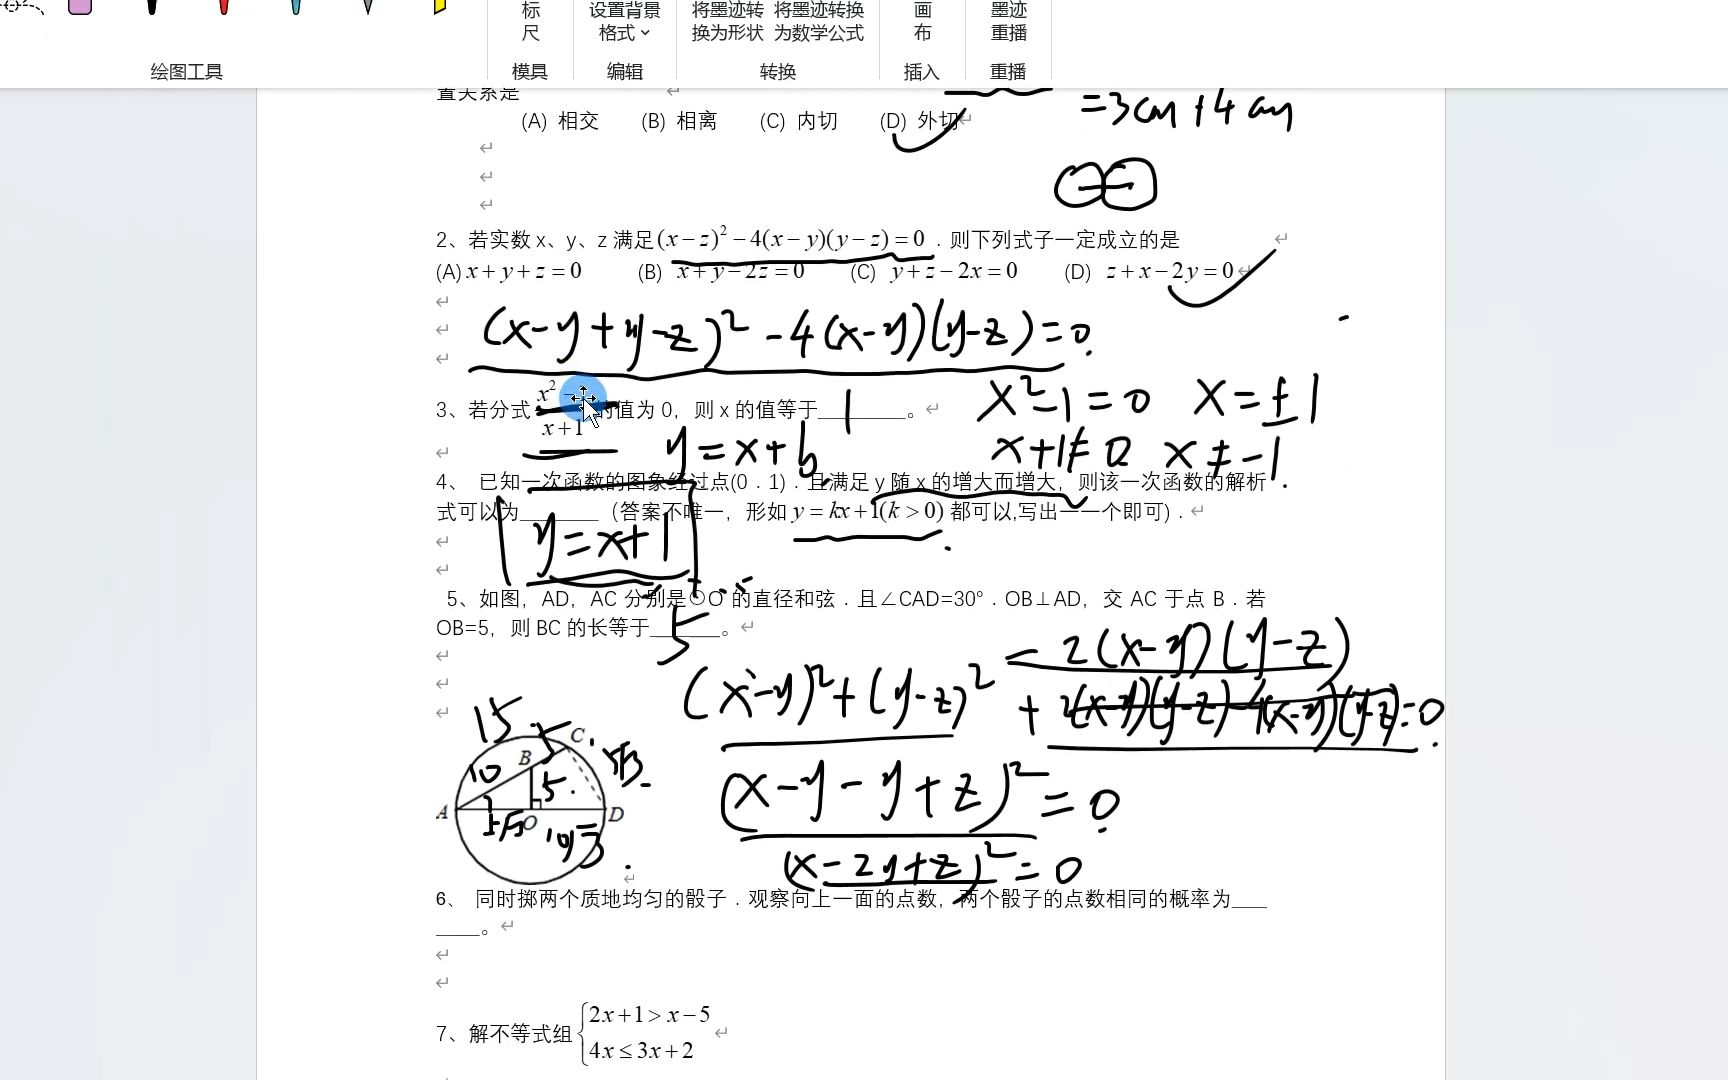 标尺
设置背景格式
将墨迹转换为形状
将墨迹转换为数学公式
画布
墨迹重播
绘图工具
模具
编辑
转换
插入
重播
置关系是
(A) 相交 (B) 相离 (C) 内切 (D) 外切
=3cm+4cm
2、若实数 x、y、z 满足(x−z)²−4(x−y)(y−z)=0．则下列式子一定成立的是
(A) x+y+z=0 (B) x+y−2z=0 (C) y+z−2x=0 (D) z+x−2y=0
(x-y+y-z)²-4(x-y)(y-z)=0
3、若分式 x² / x+1 的值为 0，则 x 的值等于________。
1
x²-1=0 x=±1
x+1≠0 x≠-1
y=x+b
4、 已知一次函数的图象经过点(0．1)．且满足 y 随 x 的增大而增大，则该一次函数的解析
式可以为________（答案不唯一，形如 y=kx+1(k>0) 都可以,写出一一个即可)．
y=x+1
5、如图，AD，AC 分别是⊙O 的直径和弦．且∠CAD=30°．OB⊥AD，交 AC 于点 B．若
OB=5，则 BC 的长等于_______。
5
(x-y)²+(y-z)² - 2(x-y)(y-z)
+2(x-y)(y-z)-4(x-y)(y-z)=0
(x-y-y+z)²=0
(x-2y+z)²=0
15 5 C
10 B 5
A O D
6、 同时掷两个质地均匀的骰子．观察向上一面的点数，两个骰子的点数相同的概率为___
____。
7、解不等式组
2x+1>x−5
4x≤3x+2